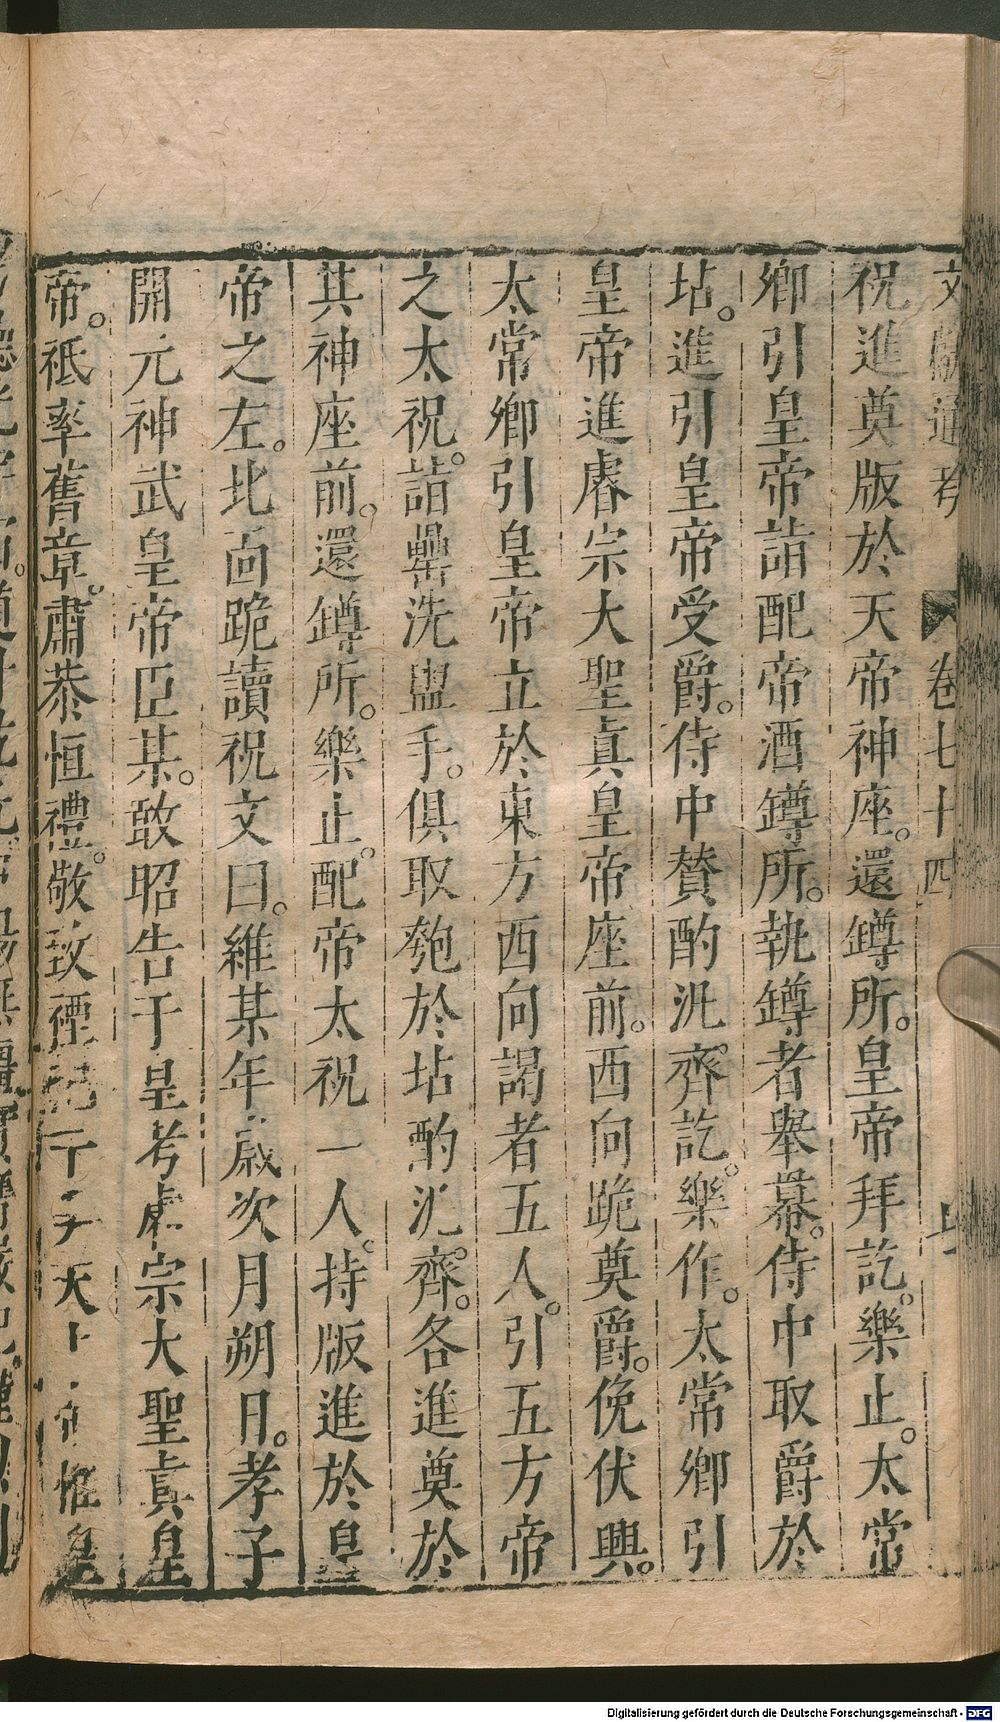 文獻通考 卷七十四
祝進奠版於天帝神座。還罇所。皇帝拜訖。樂止。太常
卿引皇帝詣配帝酒罇所。執罇者舉冪。侍中取爵於
坫。進引皇帝受爵。侍中賛酌汎齊。訖。樂作。太常卿引
皇帝進睿宗大聖眞皇帝座前。西向跪奠爵。俛伏興。
太常卿引皇帝立於東方西向謁者五人。引五方帝
之太祝。詣罍洗盥手。俱取匏於坫酌汎齊。各進奠於
其神座前。還罇所。樂止。配帝太祝一人。持版進於皇
帝之左。北面跪讀祝文曰。維某年歲次月朔日。孝子
開元神武皇帝臣某。敢昭告于皇考睿宗大聖眞皇
帝。祗率舊章。肅恭恒禮。敬致禋祀于天上帝惟皇
Digitalisierung gefördert durch die Deutsche Forschungsgemeinschaft - DFG